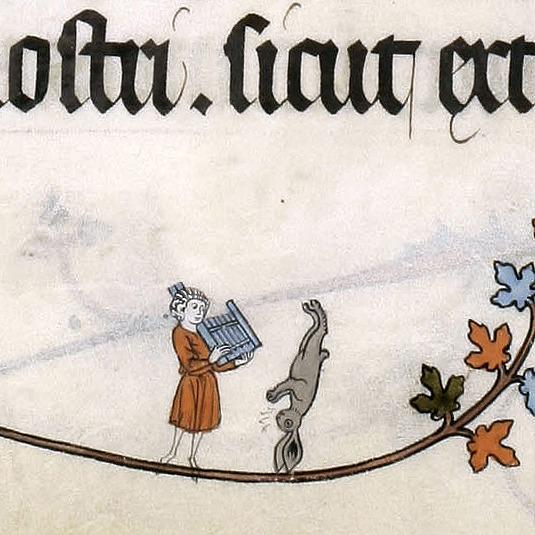 nostri. sicut ext